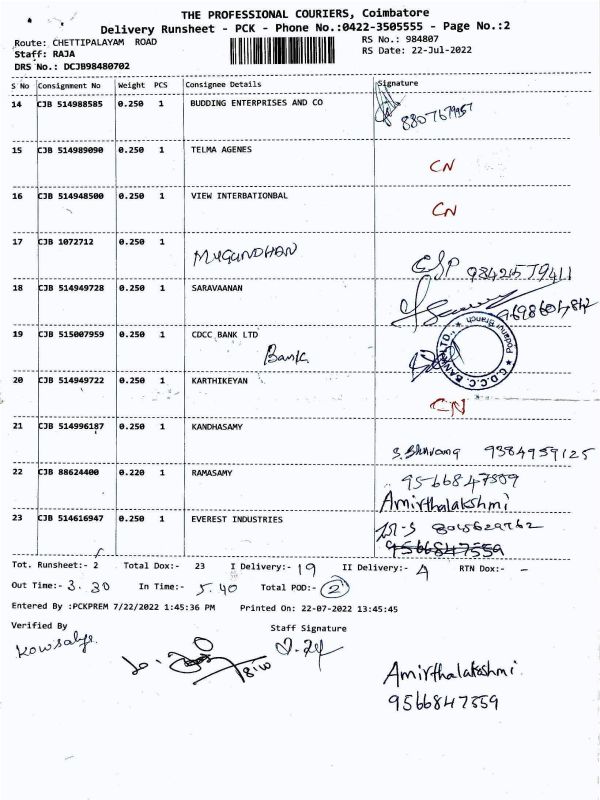 THE PROFESSIONAL COURIERS, Coimbatore
Delivery Runsheet - PCK - Phone No.:0422-3505555 - Page No.:2
Route: CHETTIPALAYAM ROAD RS No.: 984807
Staff: RAJA RS Date: 22-Jul-2022
DRS No.: DCJB98480702
S No Consignment No Weight PCS Consignee Details Signature
14 CJB 514988585 0.250 1 BUDDING ENTERPRISES AND CO
15 CJB 514989090 0.250 1 TELMA AGENES CN
16 CJB 514948500 0.250 1 VIEW INTERBATIONBAL CN
17 CJB 1072712 0.250 1 MUGUNDHAN
18 CJB 514949728 0.250 1 SARAVAANAN
19 CJB 515007959 0.250 1 CDCC BANK LTD
Bank
C.D.C.C. BANK LTD., Podanur Branch
20 CJB 514949722 0.250 1 KARTHIKEYAN CN
21 CJB 514996187 0.250 1 KANDHASAMY 9384959125
22 CJB 88624400 0.220 1 RAMASAMY
Amirthalakshmi
23 CJB 514616947 0.250 1 EVEREST INDUSTRIES
9566847559
Tot. Runsheet:- 2 Total Dox:- 23 I Delivery:- 19 II Delivery:- 4 RTN Dox:- -
Out Time:- 3.30 In Time:- 5.40 Total POD:- 2
Entered By :PCKPREM 7/22/2022 1:45:36 PM Printed On: 22-07-2022 13:45:45
Verified By Staff Signature
Amirthalakshmi
9566847559